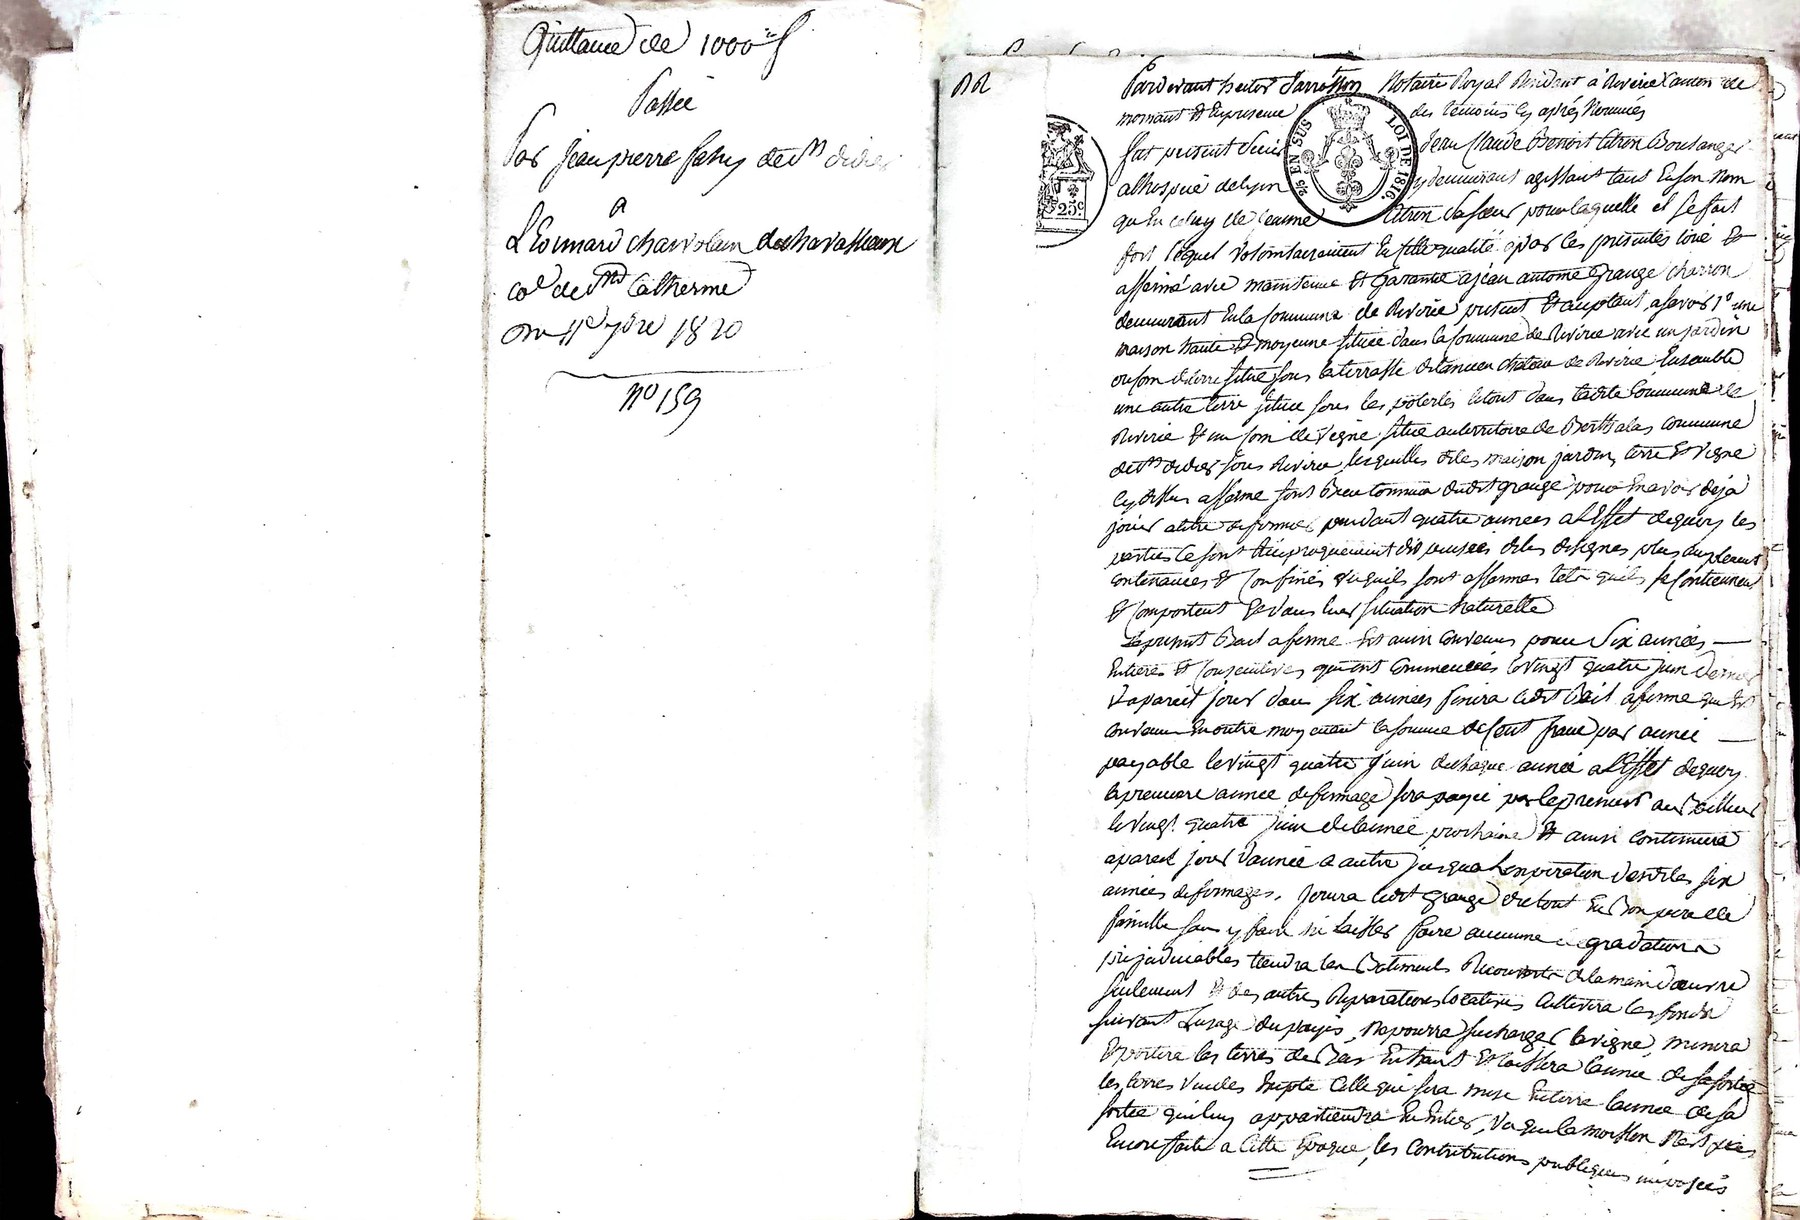 Quittance de 1000 f
Passée
Par jean pierre fahy de St didier
a
Leonnard charvolain de chavassieux
Coe de Ste Catherine
Du 11e 7bre 1820
No 159
Pardevant hector Sarrasson Notaire Royal Résidant à Riverie Canton de
mornant Et En presence des témoins cy après Nommés
fut présent Sieur Jean Claude Benoit Citron Boulanger
y demeurant agissant tant En son Nom
qu'En celuy de jeanne Citron Sa sœur pour laquelle il se fait
fort lequel volontairement En telle qualité par les présentes loué Et
affermé avec maintenue Et Garantie a jean antoine Grange charron
demeurant En la Commune de Riverie présent Et acceptant, a savoir 1o une
maison haute Et moyenne située dans la Commune de Riverie avec un jardin
situé sous la terrasse de l'ancien château de Riverie Ensemble
une autre terre située sous les poteries le tout dans ladite Commune de
Riverie Et un de vigne située au territoire de commune
de St didier sous Riverie, lesquelles dites maison jardin, terre Et vigne
Cy dessus affermé sont Bien Connus dudit grange pour En avoir déja
joui a titre de fermier pendant quatre années a L'Effet de quoy les
parties Ce sont Réciproquement dispensées de les désigner plus amplement
contenances Et Confinés qu'ils sont affermés tels qu'ils se Contiennent
Et Comportent Et dans leur situation Naturelle
Le présent Bail a ferme Est ainsi Convenu pour Six années —
Entieres Et Consecutives qui ont Commencées le vingt quatre juin Dernier
Et a pareil jour dans six années finira ledit Bail a ferme qui Est
Convenu En outre moyenant la somme de Cent francs par année —
payable le vingt quatre juin de chaque année a L'Effet de quoy
la premiere année de fermage sera payée par le preneur au Bailleur
le vingt quatre juin de l'année prochaine Et ainsi continuera
a pareil jour d'année a autre jusqu'a l'expiration desdites six
années de fermages. Jouira ledit Grange du tout En Bon pere de
famille sans y faire ni laisser faire aucune dégradations
préjudiciables tiendra les Batiments Recouverts de la main d'œuvre
seulement Et des autres Réparations locatives Cultivera les fonds
suivant L'usage du pays, Ne pourra surcharger la vigne, minera
Et portera les terres de Bas En haut Et laissera l'année de sa sortie
les terres vuides Excepté Celle qui sera mise En terre l'année de sa
sortie qui luy appartiendra En Entier, vu que la moisson N'est pas
Encore faite a Cette Epoque, les Contributions publiques imposées
25 EN SUS LOI DE 1816.
25c